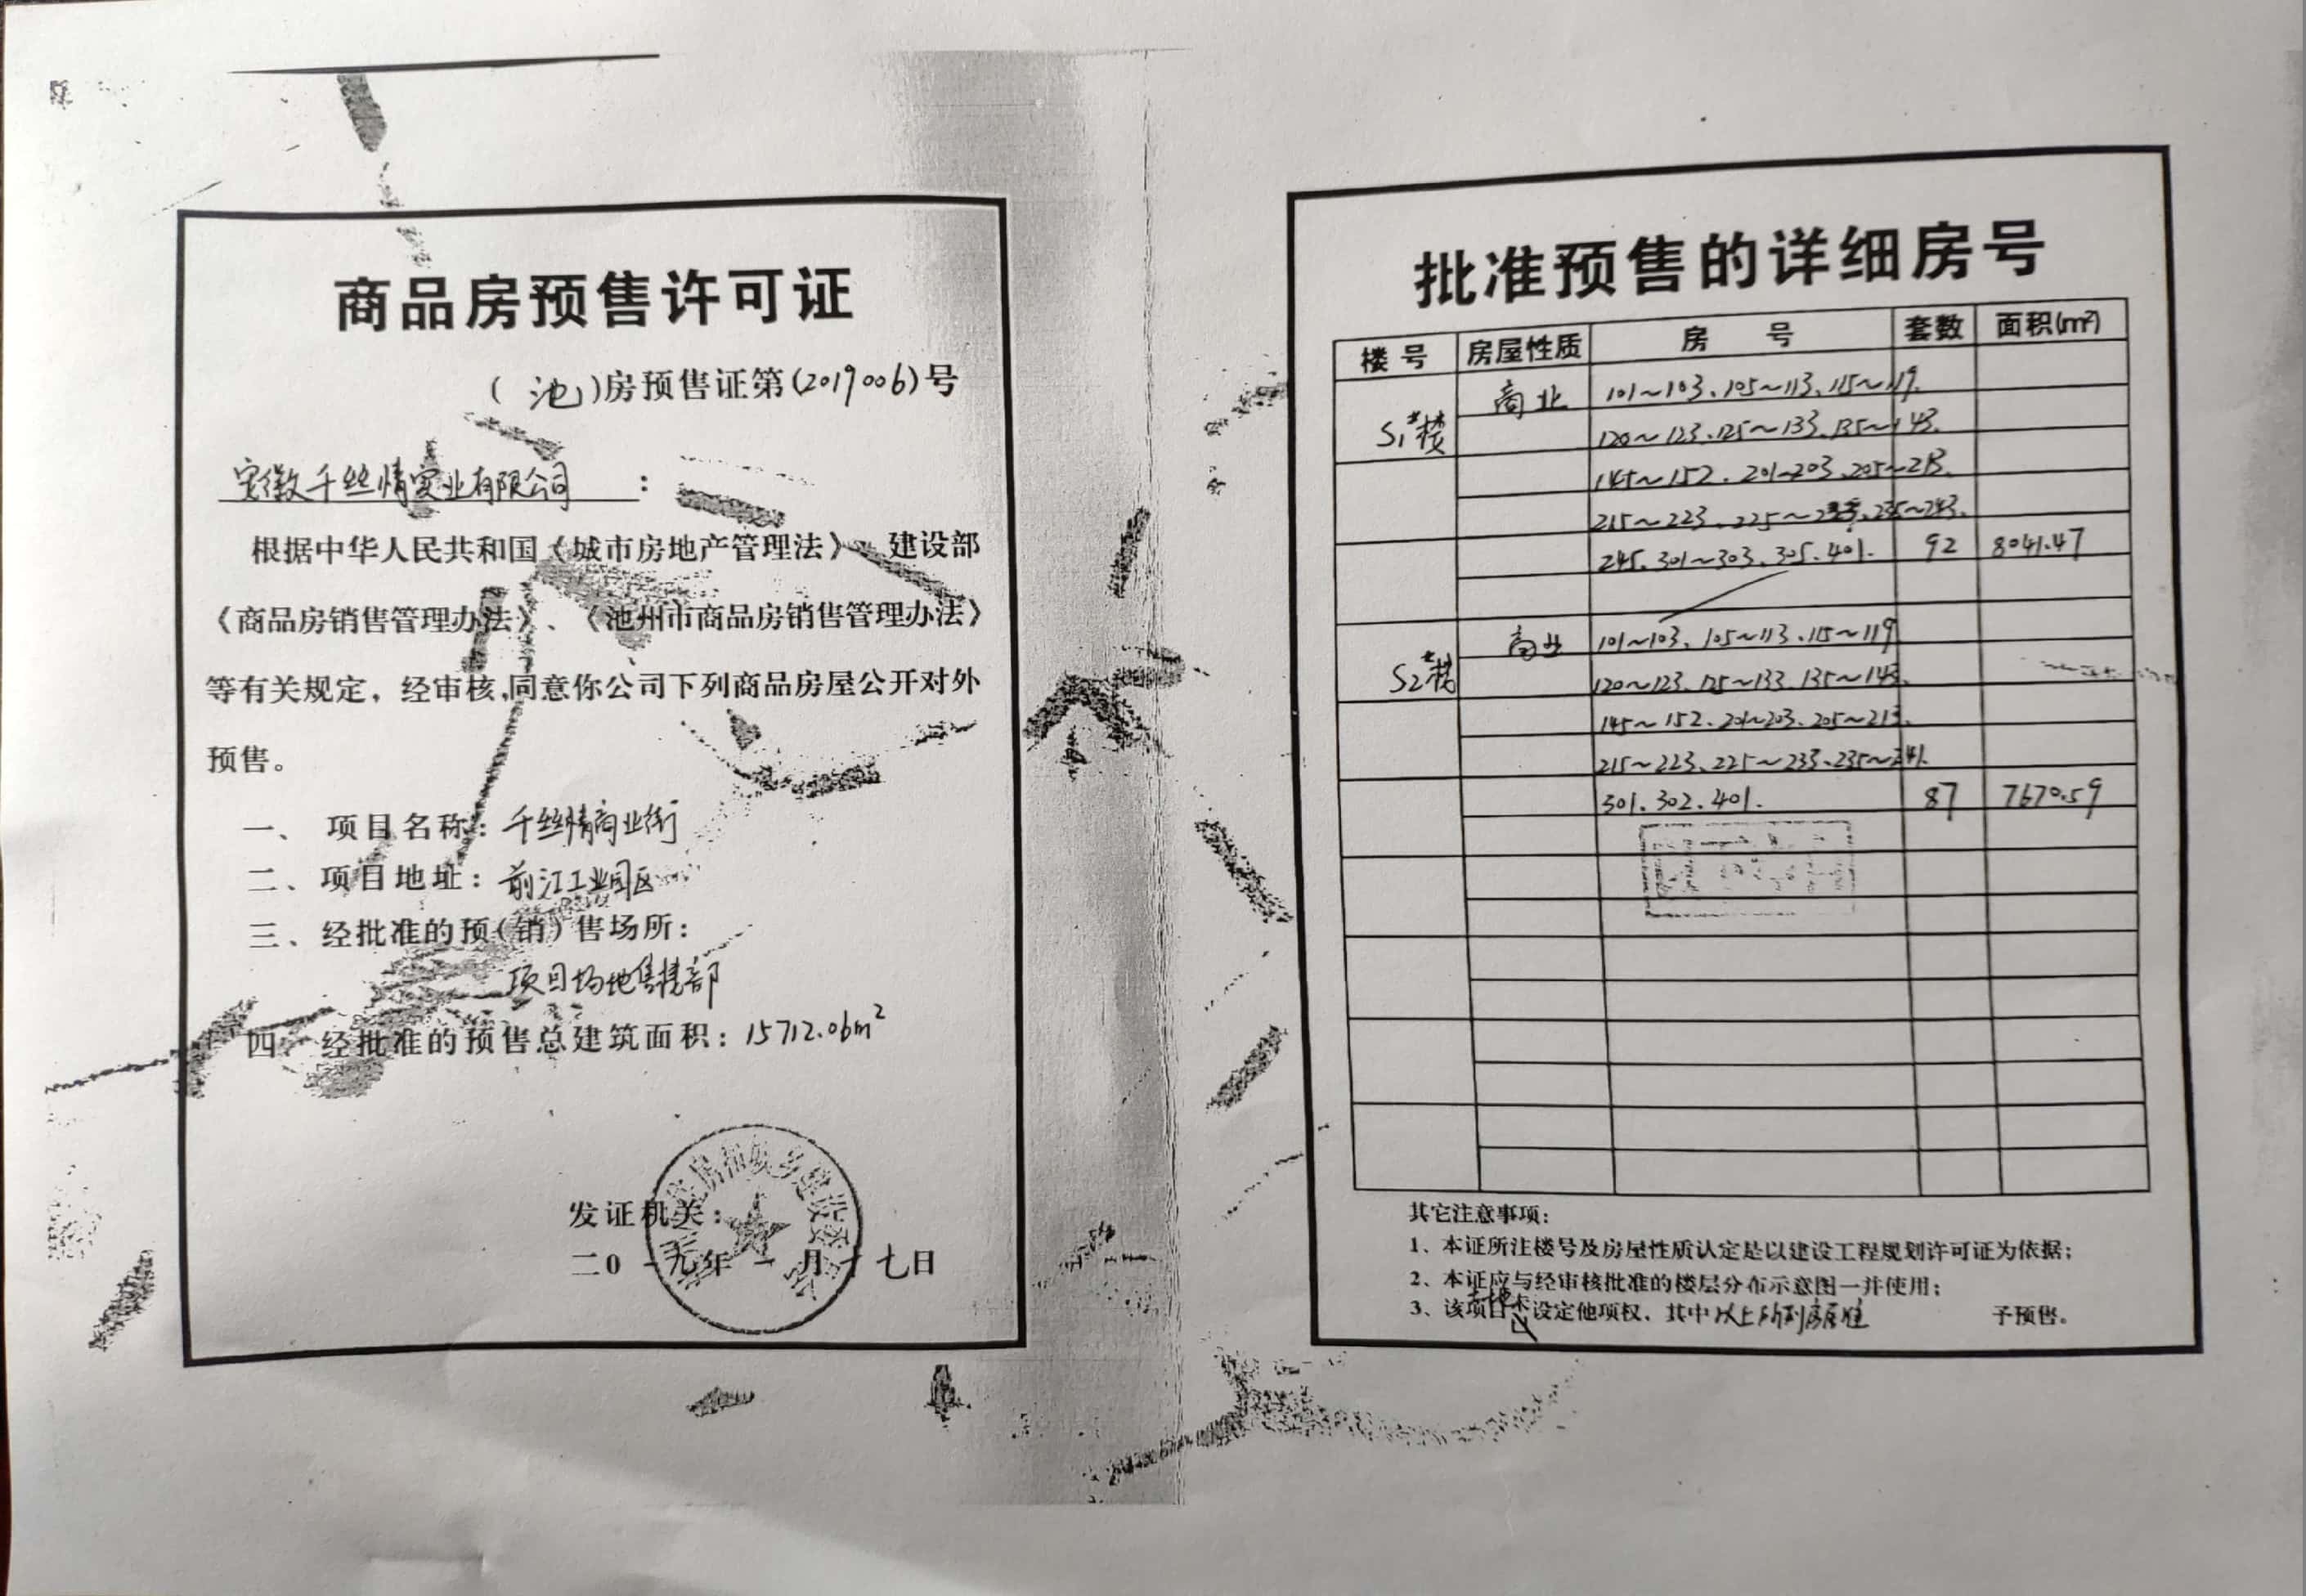 商品房预售许可证
(池)房预售证第(2019006)号
安徽千丝情实业有限公司:
根据中华人民共和国《城市房地产管理法》、建设部
《商品房销售管理办法》、《池州市商品房销售管理办法》
等有关规定，经审核,同意你公司下列商品房屋公开对外
预售。
一、项目名称:千丝情商业街
二、项目地址:前江工业园区
三、经批准的预(销)售场所:
项目场地售楼部
四、经批准的预售总建筑面积:15712.06m²
发证机关:
二0一九年一月十七日
批准预售的详细房号
楼号 房屋性质 房号 套数 面积(m²)
S1#楼 商业 101~103.105~113.115~119.
120~123.125~133.135~143.
145~152.201~203.205~213.
215~223.225~233.235~243.
245.301~303.305.401. 92 8041.47
S2#楼 商业 101~103.105~113.115~119
120~123.125~133.135~143.
145~152.201~203.205~213.
215~223.225~233.235~241.
301.302.401. 87 7670.59
其它注意事项:
1、本证所注楼号及房屋性质认定是以建设工程规划许可证为依据;
2、本证应与经审核批准的楼层分布示意图一并使用;
3、该项目土地未设定他项权，其中以上所列房屋准予预售。